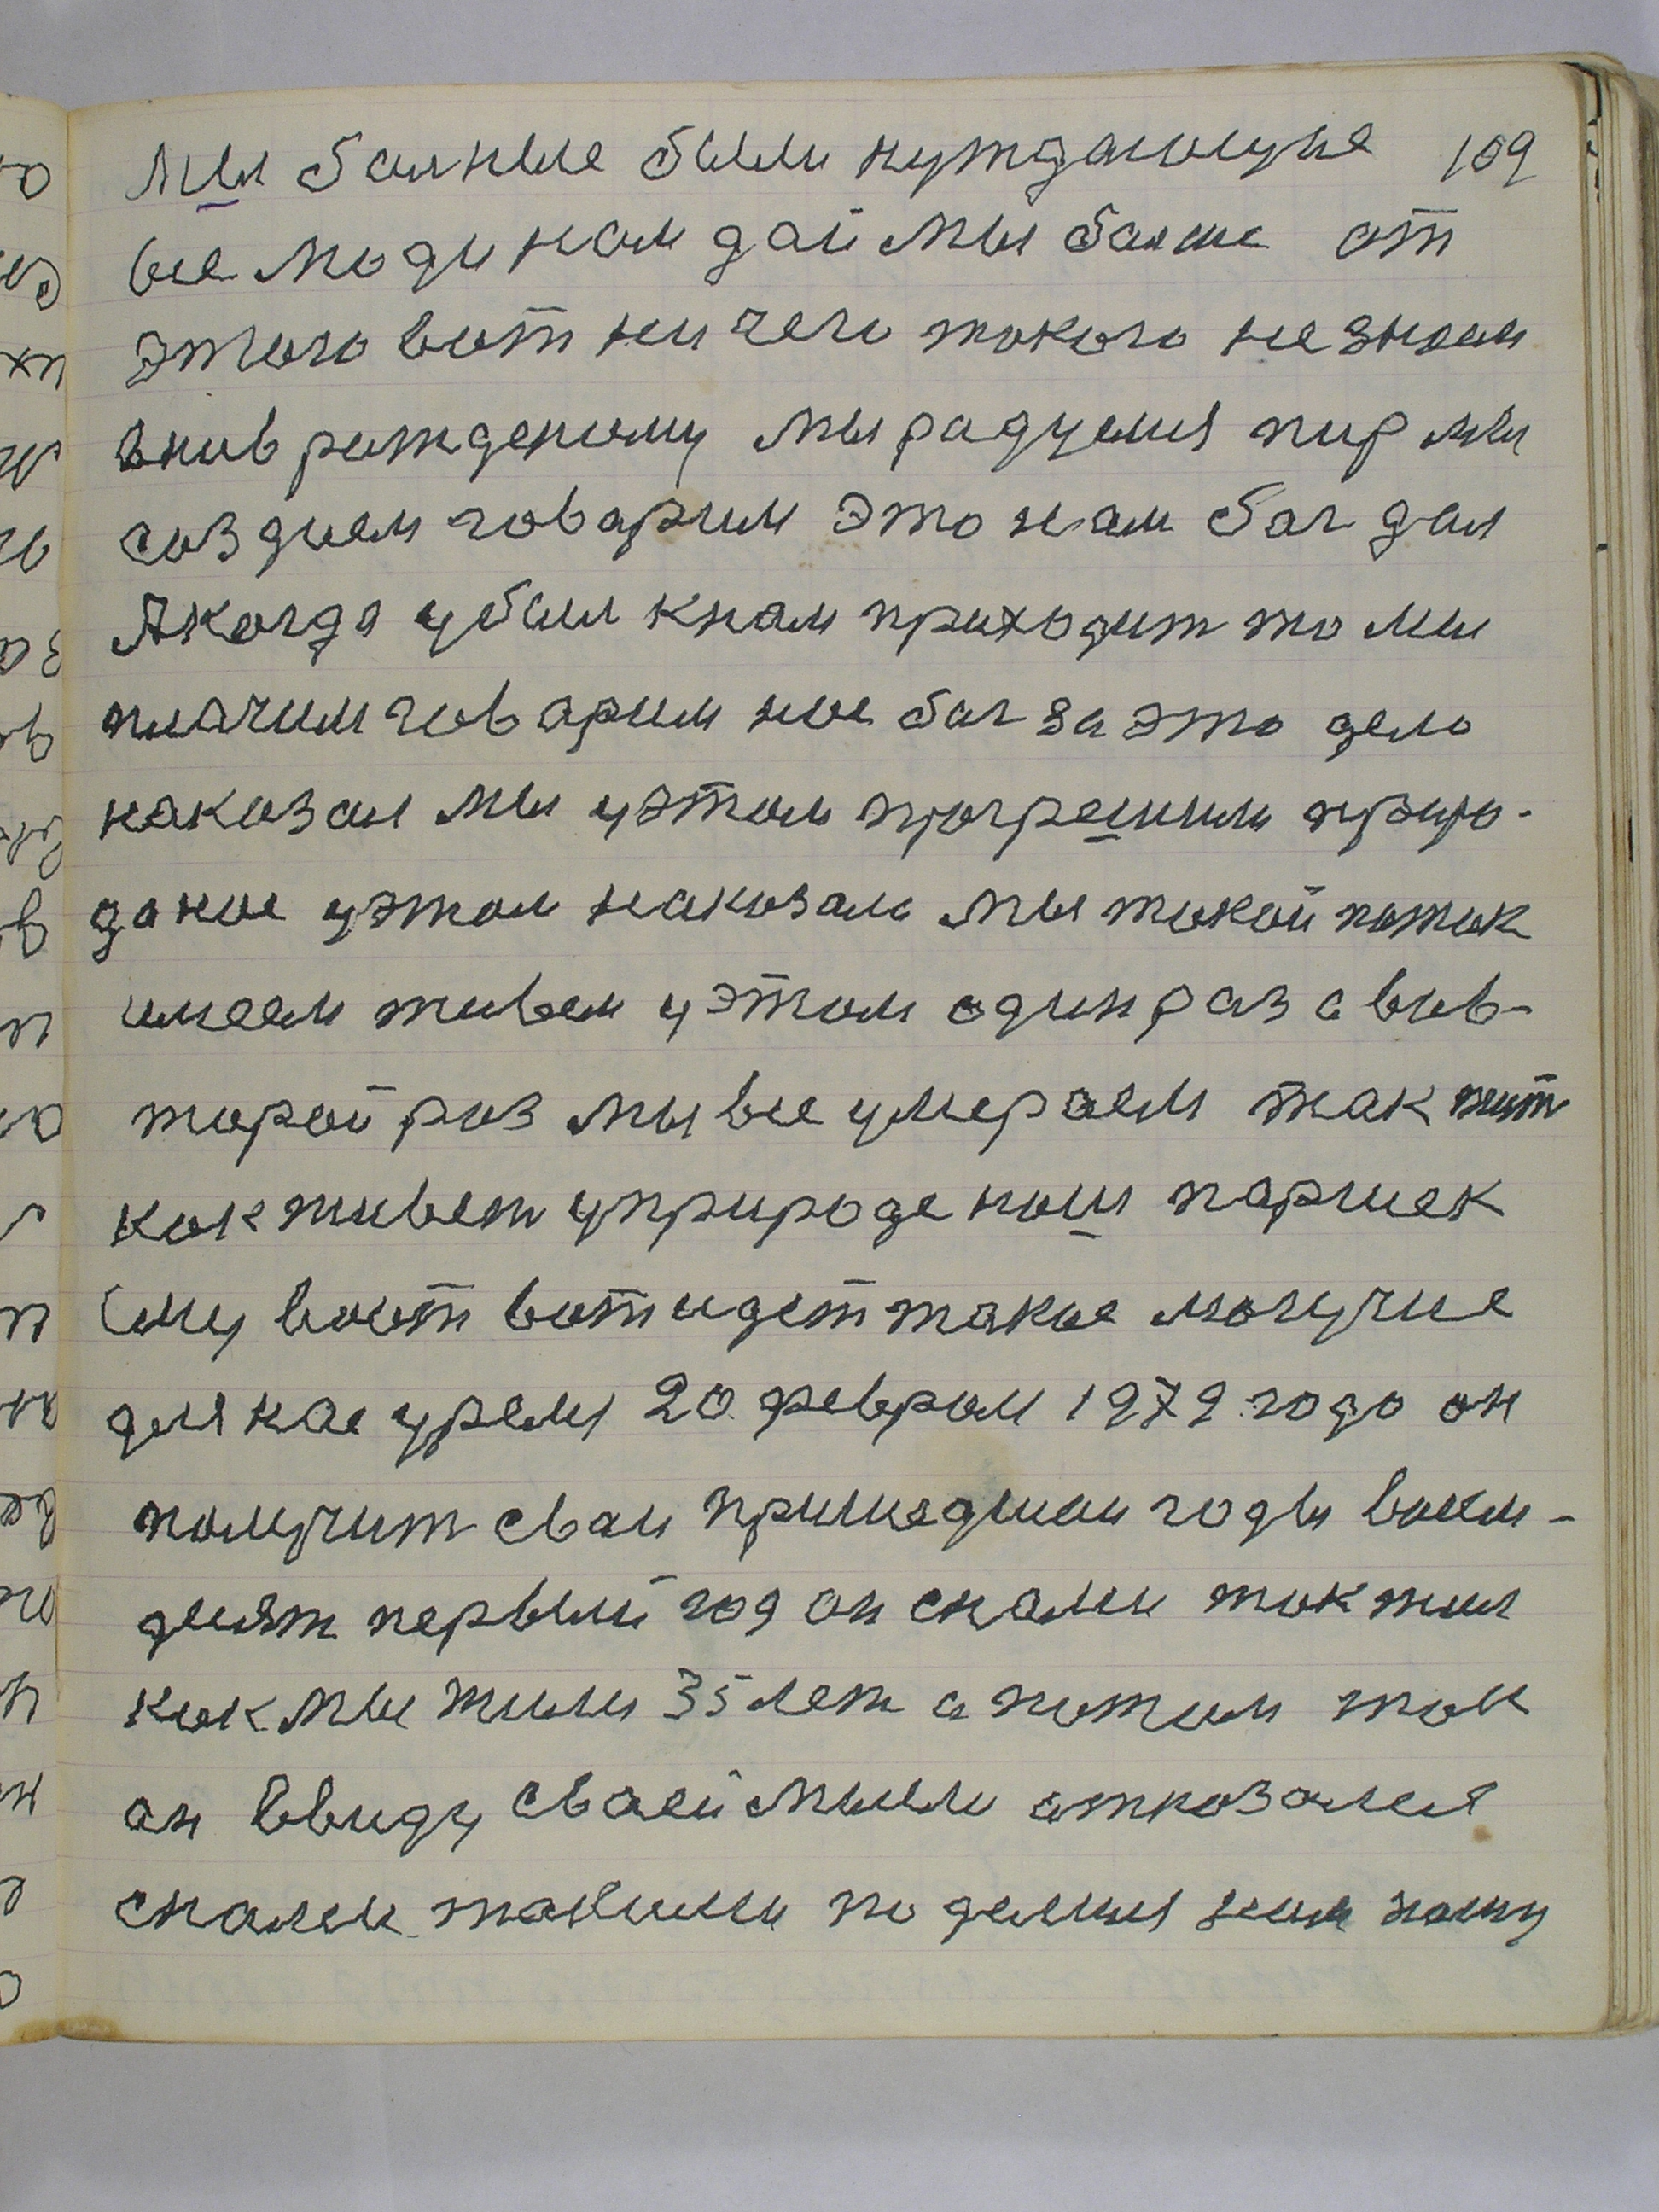 Мы балные были нуждающие 109
все люди нам дай мы балше от
этого вот ни чего такого не знаем
внов рожденому мы радуемся пир мы
создаем говарим это нам бог дал
А когда убыл кнам приходит то мы
плачим говарим нас бог за это дело
наказал мы уэтом прогрешили приро-
да нас уэтом наказала мы такой поток
имеем живем уэтом один раз а вов-
торой раз мы все умераем так жит
как живет уприроде наш паршек
ему вост вот идет такое могучие
для нас уремя 20 феврал 1979 года он
получит сваи пришедшаи годы восем-
десят первый год он снами так жил
как мы жили 35 лет а потом так
он ввиду сваей мысли отказался
снами такими по делится ним нашу